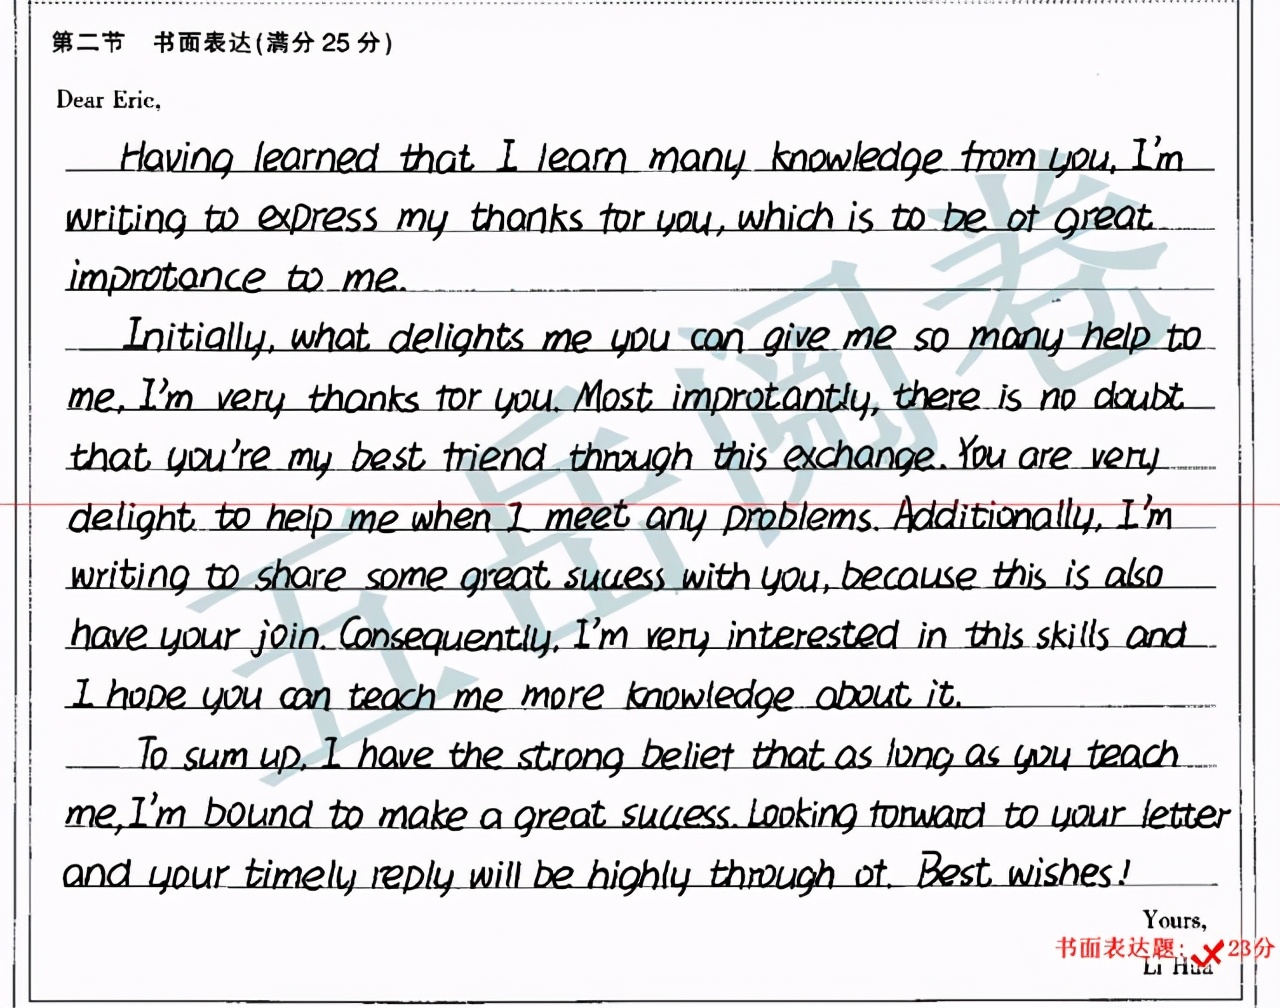 第二节 书面表达(满分 25 分)
Dear Eric,
Having learned that I learn many knowledge from you, I'm
writing to express my thanks for you, which is to be of great
improtance to me.
Initially, what delights me you can give me so many help to
me, I'm very thanks for you. Most improtantly, there is no doubt
that you're my best friend through this exchange. You are very
delight to help me when I meet any problems. Additionally, I'm
writing to share some great success with you, because this is also
have your join. Consequently, I'm very interested in this skills and
I hope you can teach me more knowledge about it.
To sum up, I have the strong belief that as long as you teach
me, I'm bound to make a great success. Looking forward to your letter
and your timely reply will be highly through of. Best wishes!
Yours,
书面表达题: 23分
Li Hua
五岳阅卷